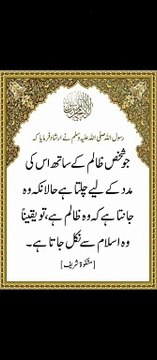 رسول اللہ صلی اللہ علیہ وسلم نے ارشاد فرمایا کہ
جو شخص ظالم کے ساتھ اس کی
مدد کے لیے چلتا ہے حالانکہ وہ
جانتا ہے کہ وہ ظالم ہے، تو یقیناً
وہ اسلام سے نکل جاتا ہے۔
[مشکوٰۃ شریف]